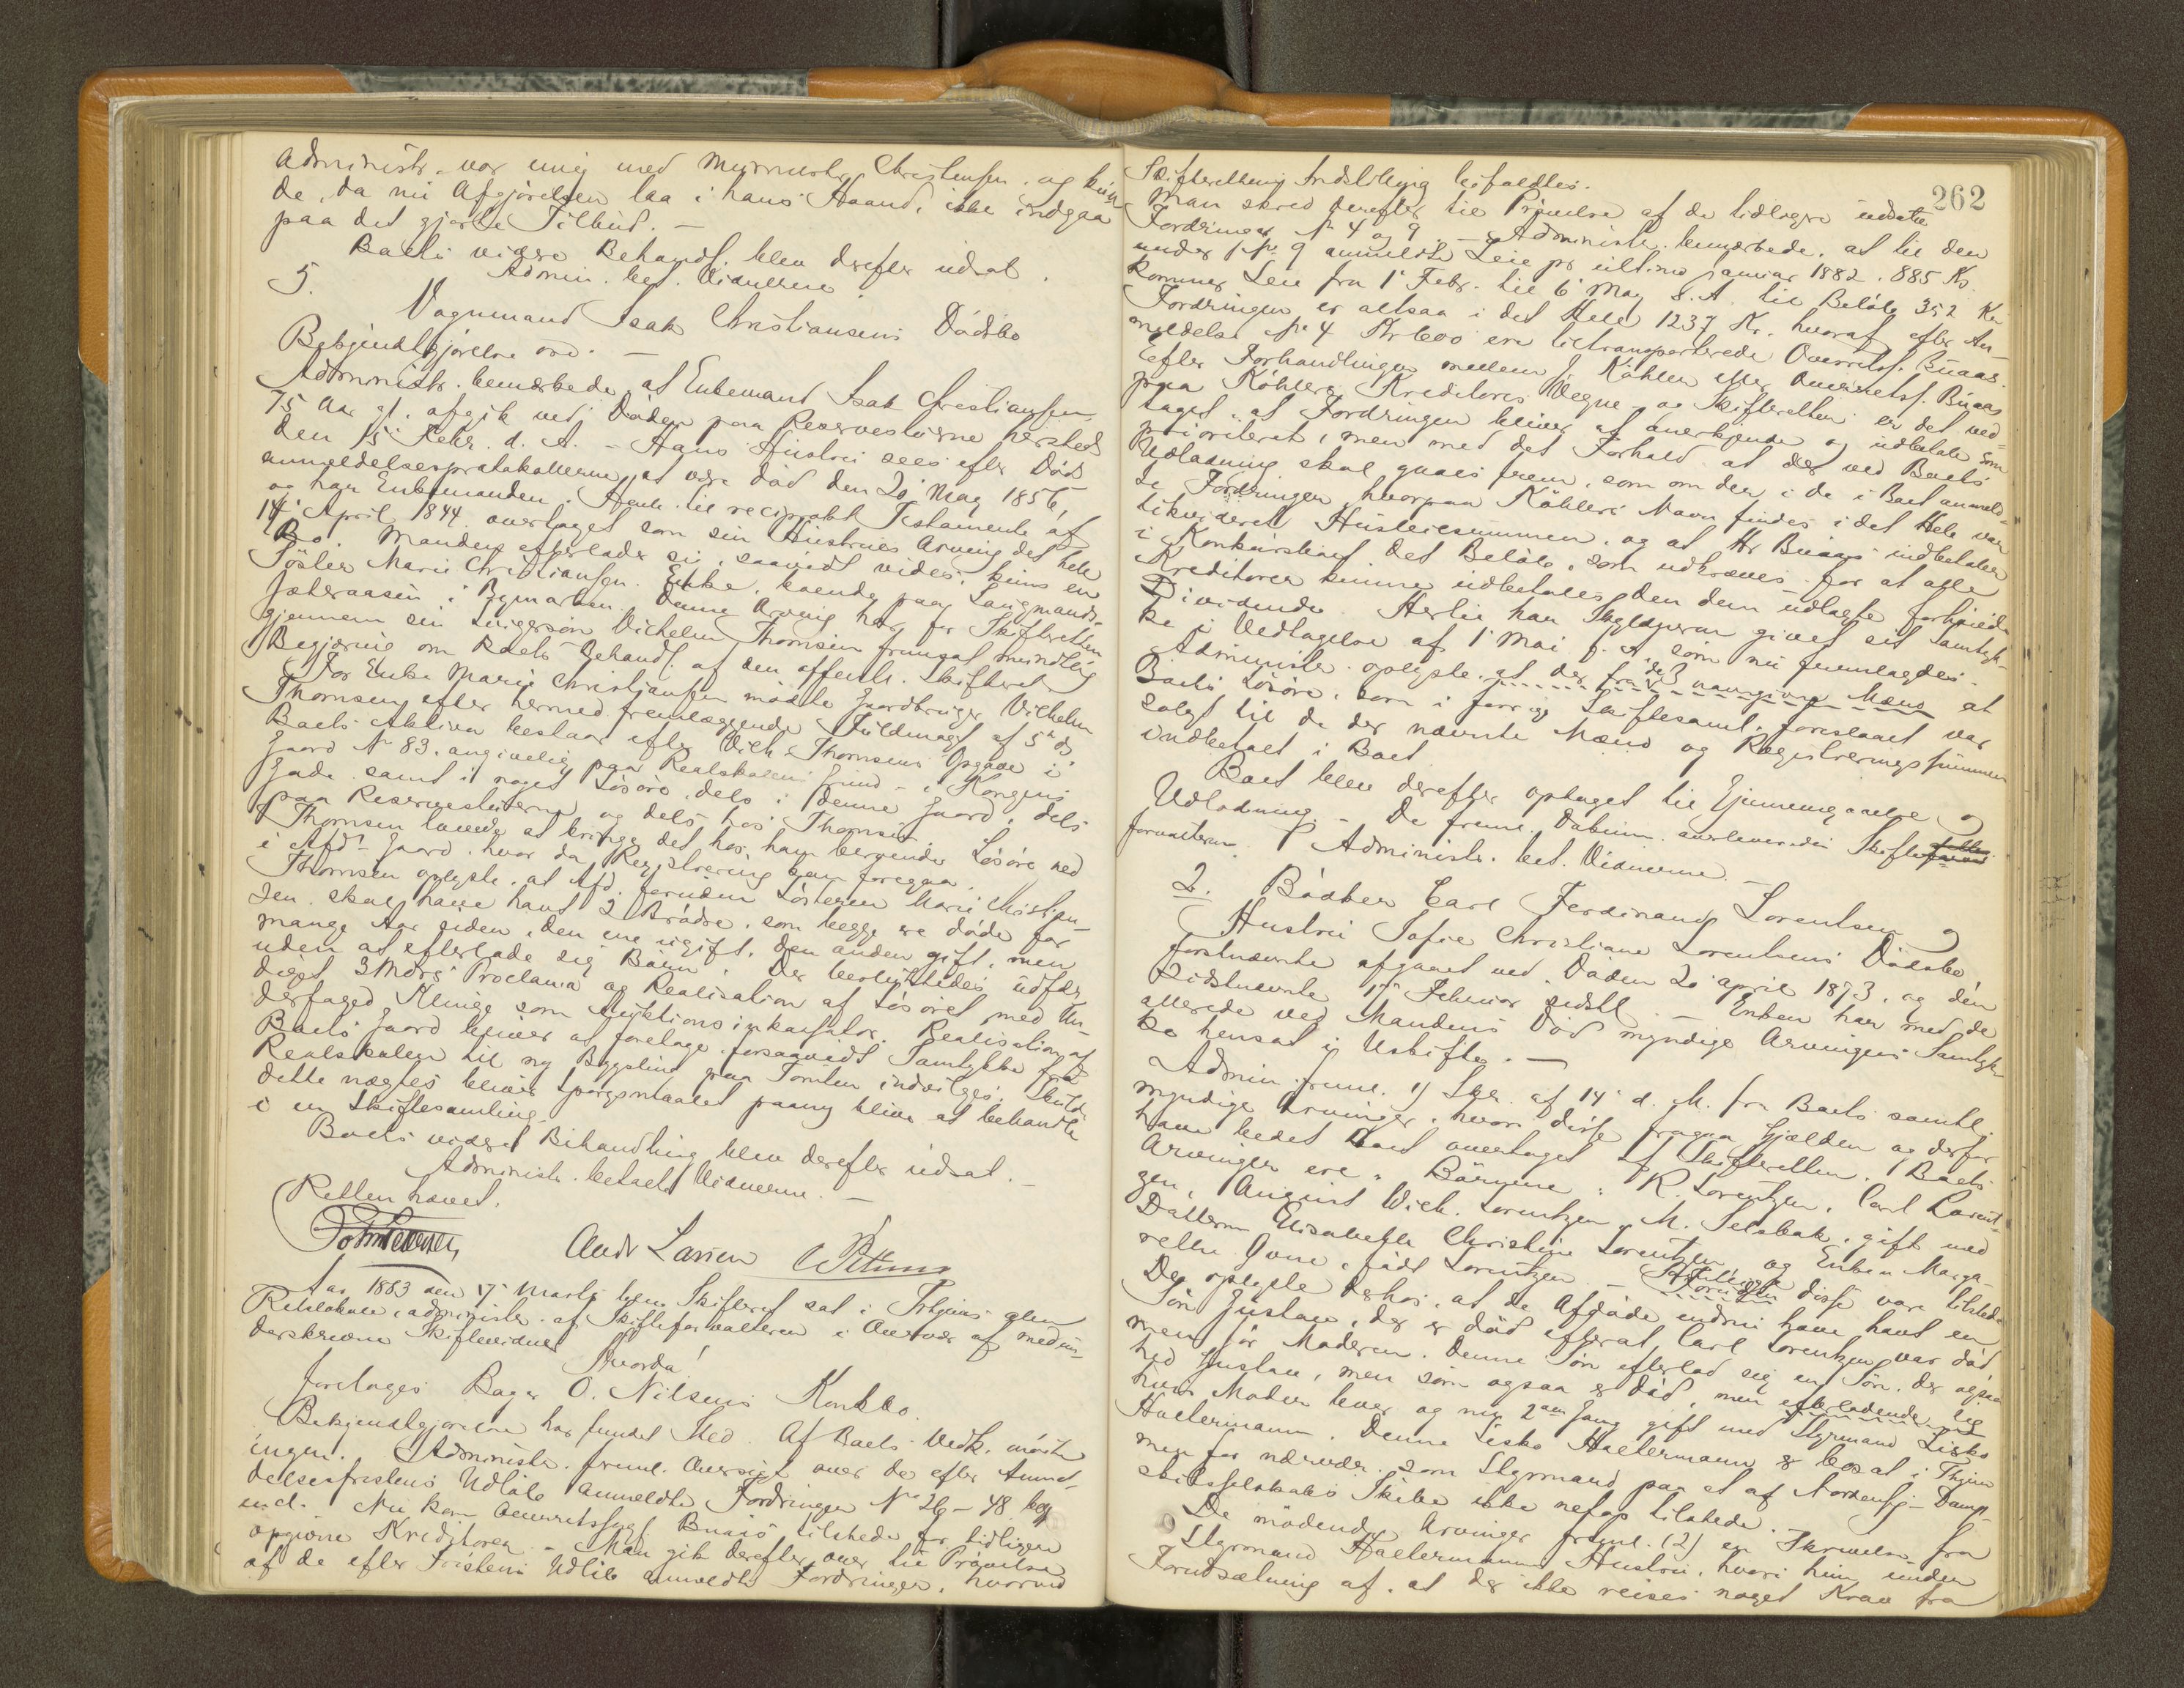 Administr. var enig med Murmester Christensen, og kun
de, da nu Afgjörelsen laa i hans Haand, ikke indgaa
paa det gjorte Tilbud. —
Boets videre Behandl. blev derefter udsat.
Admin. bet. Vidnerne.
5.
Vognmand Isak Christiansens Dödsbo
Bekjendtgjörelse
Administr. bemærkede, at Enkemand Isak Christiansen
75 Aar gl. afgik ved Döden paa Reservestuerne hersteds
den 15de Febr. d. A. — Hans Hustru sees efter Döds
anmeldelsesprotokollerne at være död den 20 Mag 1856,
og har Enkemanden i Henh. til reciprokt Testamente af
14de April 1844 overtaget som sin Hustrues Arving det hele
Bo. Manden efterlader sig, saavidt vides, kuns en
Söster Marie Christiansen. Enke, boende paa Langmands-
sæteraasen i Bymarken. Denne Arving har for Skifteretten
gjennem sin Svigersön Vilhelm Thomsen fremsat mundtlig
Begjæring om Boets Behandl. af den offentl. Skifteret
For Enke Marie Christiansen mödte Gaardbruger Vilhelm
Thomsen efter hermed fremlæggende Fuldmagt af 5te ds
Boets Aktiva bestaar efter Vilh. Thomsens Opgave i
Gaard No 83, angivelig paa Realskolens Grund — i Kongens
Gade samt i noget Lösöre, dels i denne Gaard, dels
paa Reservestuerne og dels hos Thomsen.
Thomsen lovede at bringe det hos ham beroende Lösöre ned
i Afd. Gaard, hvor da Registrering kan foregaa.
Thomsen oplyste, at Afd. foruden Sösteren Marie Christian-
sen skal have havt 2 Brödre, som begge ere döde for
mange Aar siden, den ene ugift, den anden gift, men
uden at efterlade sig Börn. Der besluttedes udfær
diget 3 Mdrs Proclama og Realisation af Lösöret med Un-
derfoged Klinge som Auktionsinkassator. Realisation af
Boets Gaard bliver at foretage forsaavidt Samtykke fra
Realskolen til ny Bygsling paa Tomten indvilges. Skulde
dette nægtes bliver Spörgsmaalet paany blive at behandle
i en Skiftesamling.
Boets videre Behandling blev derefter udsat. —
Administr. betalte Vidnerne. —
Retten hævet.
Andr Larsen
Aar 1883 den 17de Marts blev Skifteret sat i Thjems alm
Retslokale, administr. af Skifteforvalteren i Overvær af medun-
derskrevne Skiftevidner
Hvorda!
foretoges Bager O. Nilsens Konkbo.
Bekjendtgjörelse har fundet Sted. Af Boets Vedk. mödte
ingen. Administr. freml. Oversigt over de efter Anmel-
delsesfristens Udlöb anmeldte Fordringer No 26 – 48 beg
incl. Nu kom Overretssagf. Buaas tilstede for tidligere
opgivne Kreditorer. — Man gik derefter over til Prövelse
af de efter Fristens Udlöb anmeldte Fordringer, hvorved
262
Skifterettens Indstilling bifaldtes.
Man skred derefter til Prövelse af de tidligere udsatte
Fordringer No 4 og 9. — Administr. bemærkede, at til den
under No 9 anmeldte Leie pr ultimo Januar 1882, 885 Kr.
kommer Leie fra 1 Febr. til 6 Mag s. A. til Belöb 352 Kr
Fordringen er altsaa i det Hele 1237 Kr. hvoraf efter An-
meldelse No 4 Kr 600 ere tiltransporterede Overretss. Buaas.
Efter Forhandlinger mellem J. Köhler eller Overretss. Buaas
paa Köhlers Kreditores Vegne og Skifteretten er det ved-
taget, at Fordringen bliver at anerkjende og udbetale som
prioriteret, men med det Forhold at der ved Boets
Udlodning skal gaaes frem, som om den i de i Boet anmeld-
te Fordringer, hvorpaa Köhlers Navn findes i det Hele var
likvideret Husleiesummen, og at Hr Buaas indbetaler
i Konkursboet det Belöb, som udkræves for at alle
Kreditorer kunne udbetales den dem udlagte forhöiede
Dividende. Hertil har Skyldneren givet sit Samtyk-
ke i Vedtagelse af 1 Mai f. A. som nu fremlagdes.
Administr. oplyste, at der fra de 3 navngivne Mænd at
Boets Lösöre, som i forrige Skiftesaml. foreslaaet var
solgt til de der nævnte Mænd og Registreringssummen
indbetalt i Boet
Boet blev derefter optaget til Gjennemgaaelse og
Udlodning. — De freml. Dokum. overleveredes Skifte
forvalteren. Administr. bet. Vidnerne. —
2. Bödker Carl Ferdinand Lorentsen og
Hustru Sofie Christiane Lorentsens Dödsbo.
Förstnævnte afgaaet ved Döden 20 April 1873, og den
sidstnævnte 17de Februar sidstl. — Enken har med de
allerede ved Mandens Död myndige Arvingers Samtyk-
ke hensat i Uskifte. —
Admin. freml. 1) Skr. af 14 d. M. fra Boets samtl.
myndige Arvinger, hvori disse fragaa Gjælden og derfor
have bedet Boet overtaget af Skifteretten. Boets
Arvinger ere: Börnene: R. Lorentzen, Carl Lorent-
zen, August Wilh. Lorentzen, M. Selsbak, gift med
Datteren Elisabeth Christine Lorentzen og Enken Marga-
rethe Ovne, födt Lorentzen. — Samtlige disse vare tilstede
Der oplystes derhos, at de Afdöde endnu have havt en
Sön Gustav, der er död efterat Carl Lorentzen var död
men för Moderen. Denne Sön efterlod sig en Sön, der ogsaa
hed Gustav, men som ogsaa er död, men efterladende sig
sin Moder lever og nu 2den Gang gift med Styrmand Lisko
Haltermann. Denne Lisko Haltermann er bosat i Thjem
men for nærvær. som Styrmand paa et af Nordenfj. Damp-
skibsselskabs Skibe ikke netop tilstede.
De mödende Arvinger freml. (2) en Skrivelse fra
Styrmand Haltermanns Hustru, hvori hun under
Forudsætning af, at der ikke reises noget Krav fra